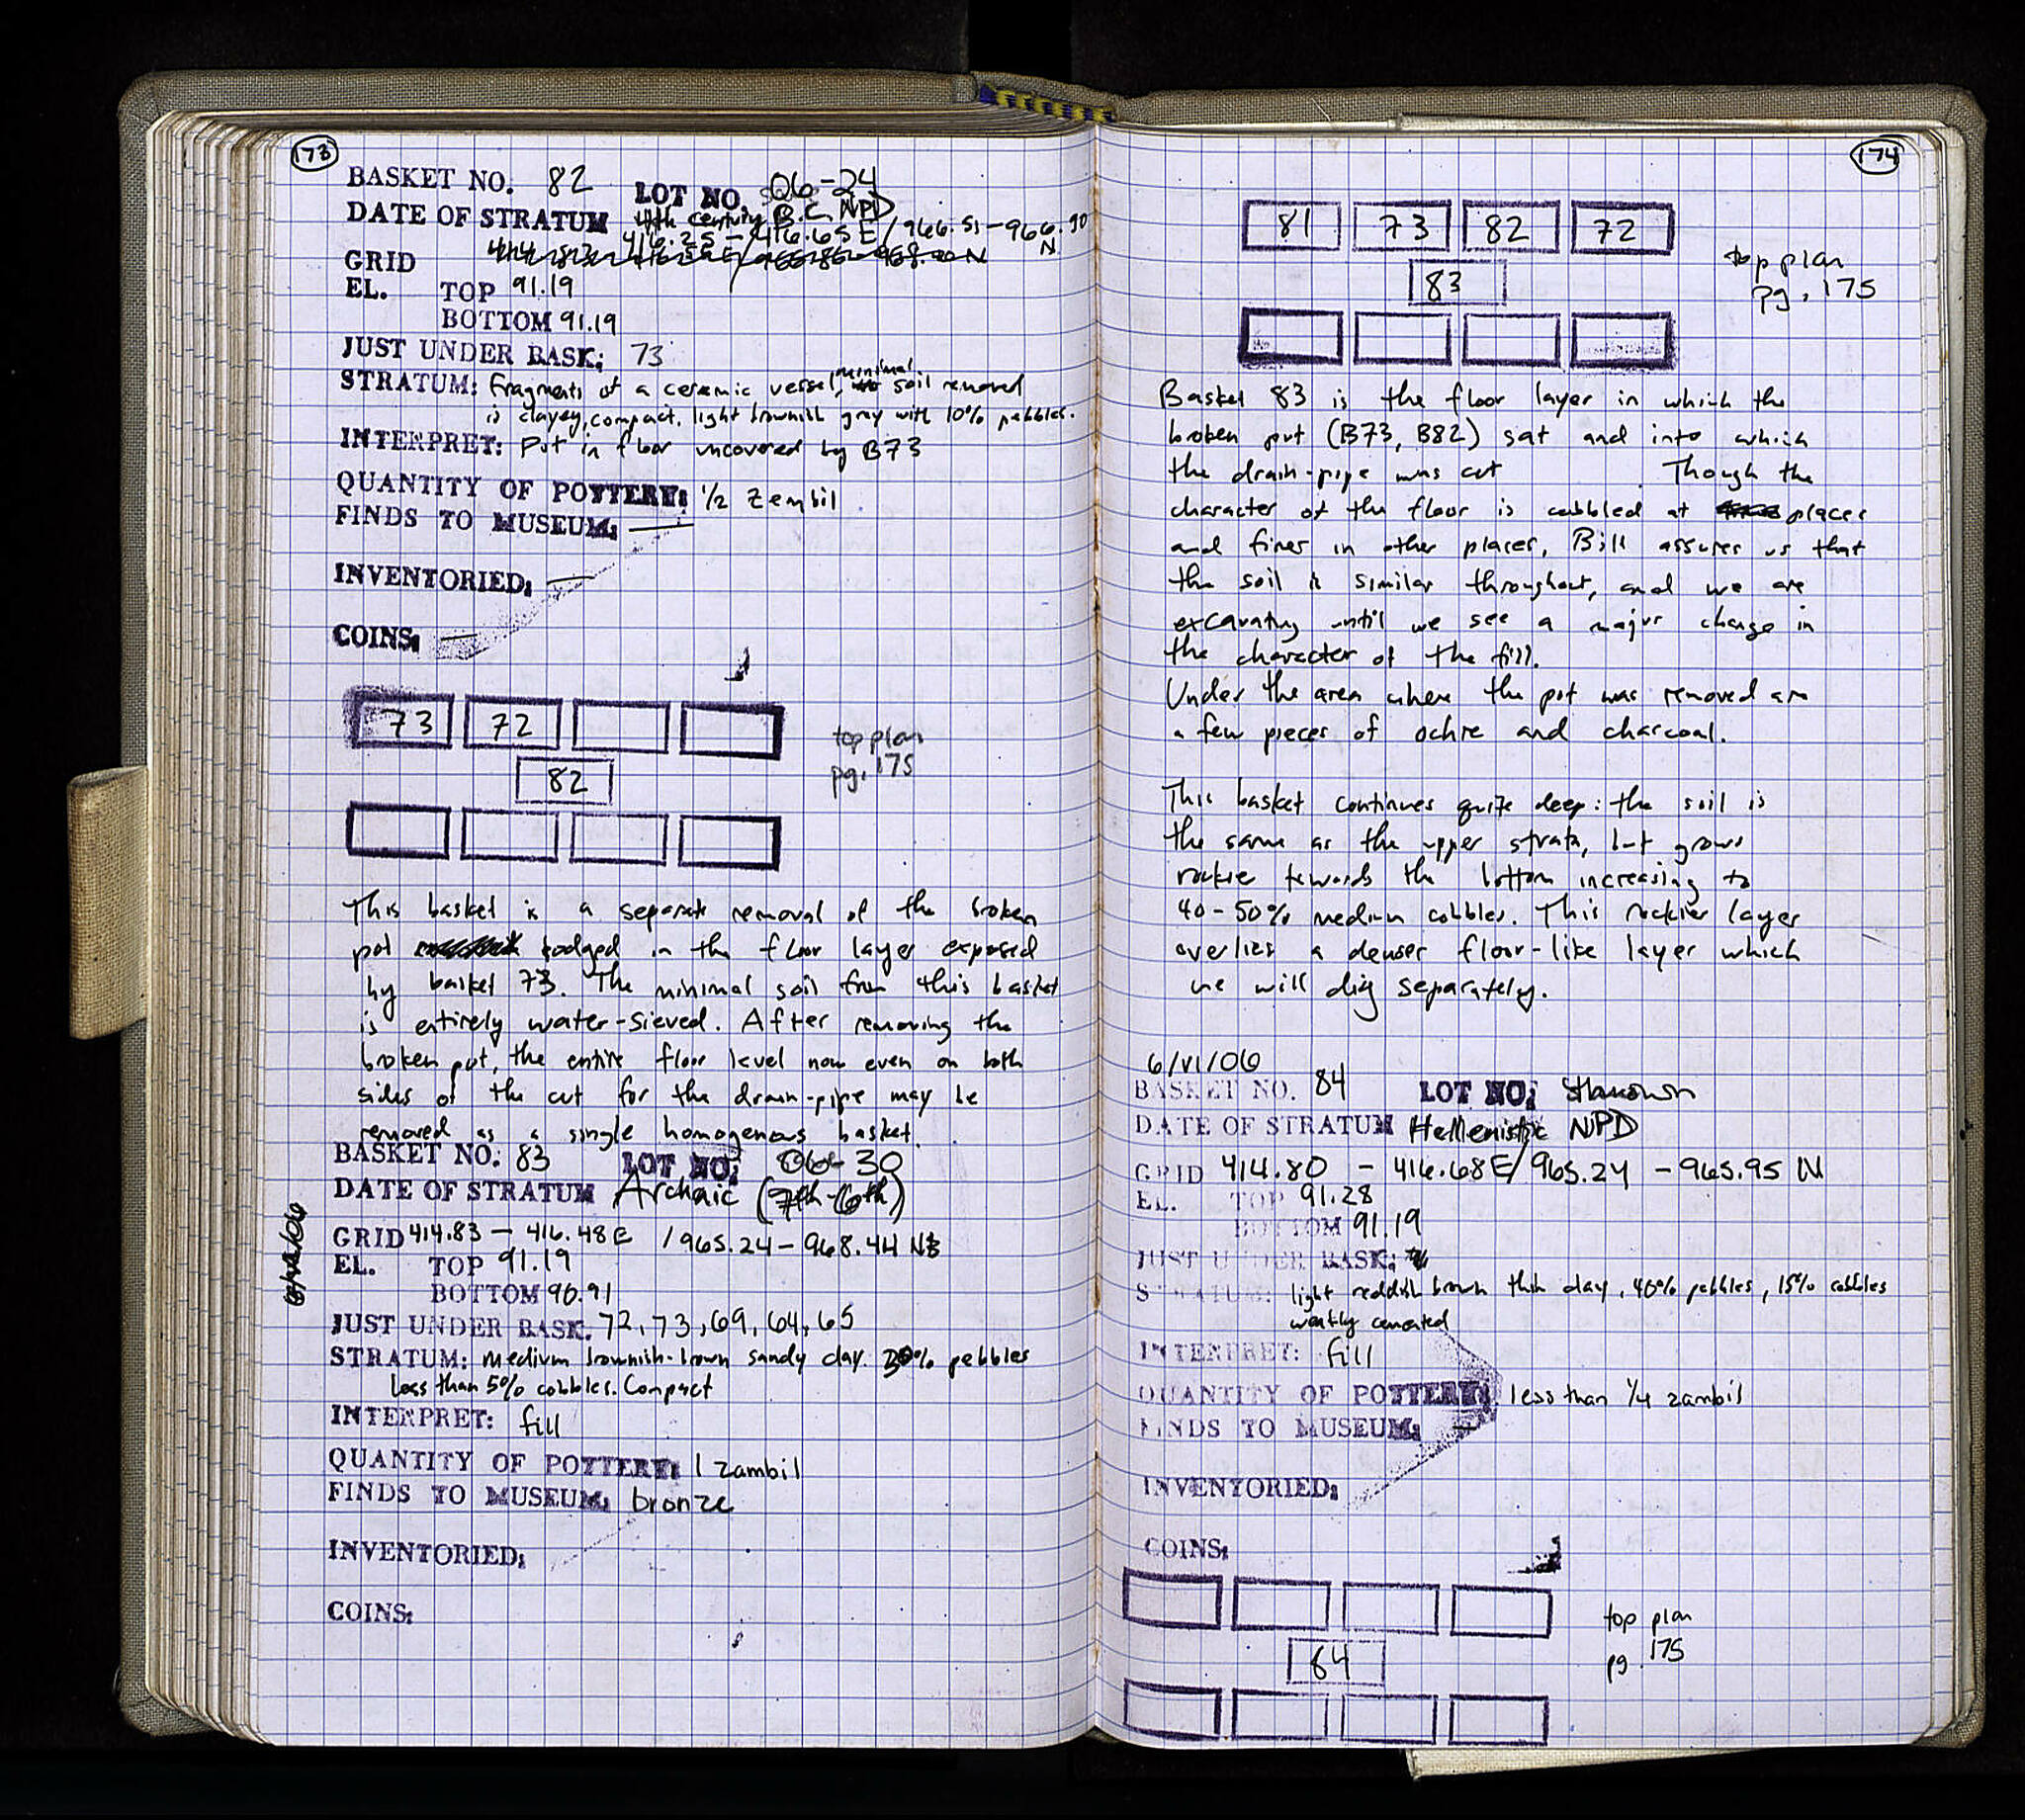 173
BASKET NO. 82 LOT NO. 06-24
DATE OF STRATUM 4th century B.C NPD
416.25 - 416.65 E / 966.51 - 966.90 N
GRID
EL. TOP 91.19
BOTTOM 91.19
JUST UNDER BASK: 73
STRATUM: fragments of a ceramic vessel, minimal soil removed
is clayey, compact, light brownish gray with 10% pebbles.
INTERPRET: Pot in floor uncovered by B73
QUANTITY OF POTTERY: 1/2 Zembil
FINDS TO MUSEUM: —
INVENTORIED: —
COINS: —
73 72
top plan
pg. 175
82
This basket is a separate removal of the broken
pot lodged in the floor layer exposed
by basket 73. The minimal soil from this basket
is entirely water-sieved. After removing the
broken pot, the entire floor level now even on both
sides of the cut for the drain-pipe may be
removed as a single homogenous basket.
BASKET NO: 83 LOT NO: 06-30
DATE OF STRATUM Archaic (7th-6th)
GRID 414.83 - 416.48 E / 965.24 - 968.44 N
EL. TOP 91.19
BOTTOM 90.91
JUST UNDER BASK. 72, 73, 69, 64, 65
STRATUM: medium brownish-brown sandy clay. 30% pebbles
less than 5% cobbles. Compact
INTERPRET: fill
QUANTITY OF POTTERY: 1 zambil
FINDS TO MUSEUM: bronze
INVENTORIED:
COINS:
174
81 73 82 72
top plan
pg. 175
83
Basket 83 is the floor layer in which the
broken pot (B73, B82) sat and into which
the drain-pipe was cut. Though the
character of the floor is cobbled at places
and finer in other places, Bill assures us that
the soil is similar throughout, and we are
excavating until we see a major change in
the character of the fill.
Under the area where the pot was removed are
a few pieces of ochre and charcoal.
This basket continues quite deep: the soil is
the same as the upper strata, but grows
rockie towards the bottom increasing to
40-50% medium cobbles. This rockier layer
overlies a denser floor-like layer which
we will dig separately.
6/VI/06
BASKET NO. 84 LOT NO:
DATE OF STRATUM Hellenistic NPD
GRID 414.80 - 416.68 E / 965.24 - 965.95 N
EL. TOP 91.28
BOTTOM 91.19
JUST UNDER BASK:
STRATUM: light reddish brown thin clay, 40% pebbles, 15% cobbles
weakly cemented
INTERPRET: fill
QUANTITY OF POTTERY: less than 1/4 zambil
FINDS TO MUSEUM: —
INVENTORIED:
COINS:
top plan
pg. 175
84